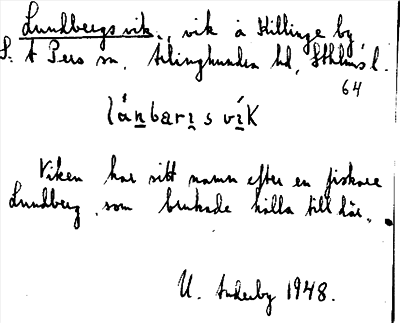 Lundbergsvik, vik å Hillinge by
S:t Pers sn, Ärlinghundra hd, Sthlms l.
64
lánbaris vík
Viken har sitt namn efter en fiskare
Lundberg som brukade hålla till där.
U. Anderby 1948.